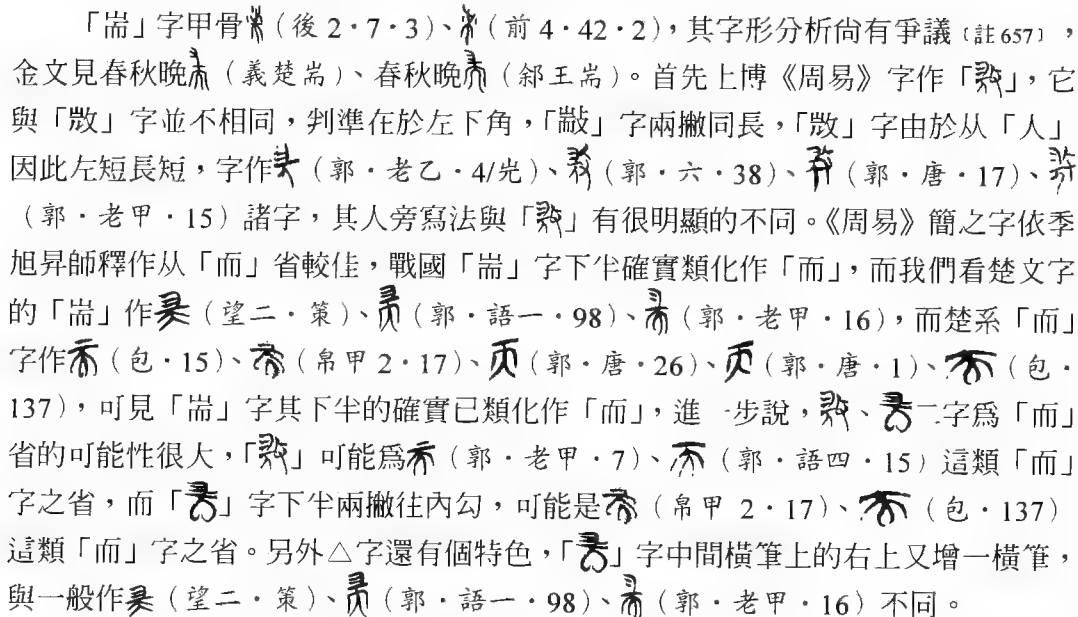 「耑」字甲骨（後 2．7．3）、（前 4．42．2），其字形分析尚有爭議〔註657〕，
金文見春秋晚（義楚耑）、春秋晚（郐王耑）。首先上博《周易》字作「」，它
與「敳」字並不相同，判準在於左下角，「敱」字兩撇同長，「敳」字由於从「人」
因此左短長短，字作（郭．老乙．4/岂）、（郭．六．38）、（郭．唐．17）、
（郭．老甲．15）諸字，其人旁寫法與「」有很明顯的不同。《周易》簡之字依季
旭昇師釋作从「而」省較佳，戰國「耑」字下半確實類化作「而」，而我們看楚文字
的「耑」作（望二．策）、（郭．語一．98）、（郭．老甲．16），而楚系「而」
字作（包．15）、（帛甲 2．17）、（郭．唐．26）、（郭．唐．1）、（包．
137），可見「耑」字其下半的確實已類化作「而」，進一步說，、二字為「而」
省的可能性很大，「」可能為（郭．老甲．7）、（郭．語四．15）這類「而」
字之省，而「」字下半兩撇往內勾，可能是（帛甲 2．17）、（包．137）
這類「而」字之省。另外△字還有個特色，「」字中間橫筆上的右上又增一橫筆，
與一般作（望二．策）、（郭．語一．98）、（郭．老甲．16）不同。